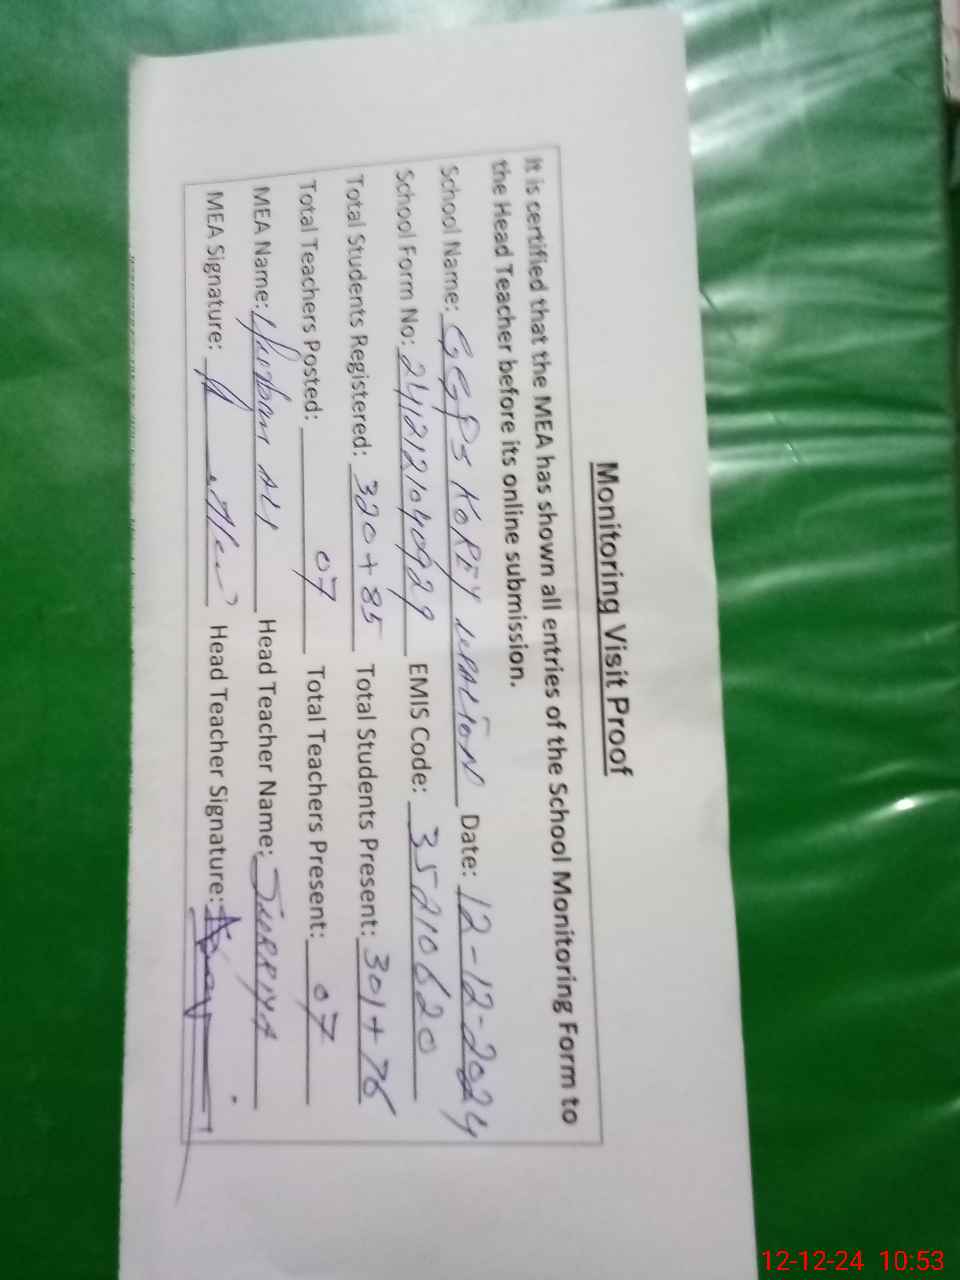 Monitoring Visit Proof
It is certified that the MEA has shown all entries of the School Monitoring Form to
the Head Teacher before its online submission.
School Name: GGPS KOREY Date: 12-12-2024
School Form No: 2412121040929 EMIS Code: 35210620
Total Students Registered: 320+85 Total Students Present: 301+76
Total Teachers Posted: 07 Total Teachers Present: 07
MEA Name: ALI Head Teacher Name: SURRIYA
MEA Signature: Head Teacher Signature:
12-12-24 10:53